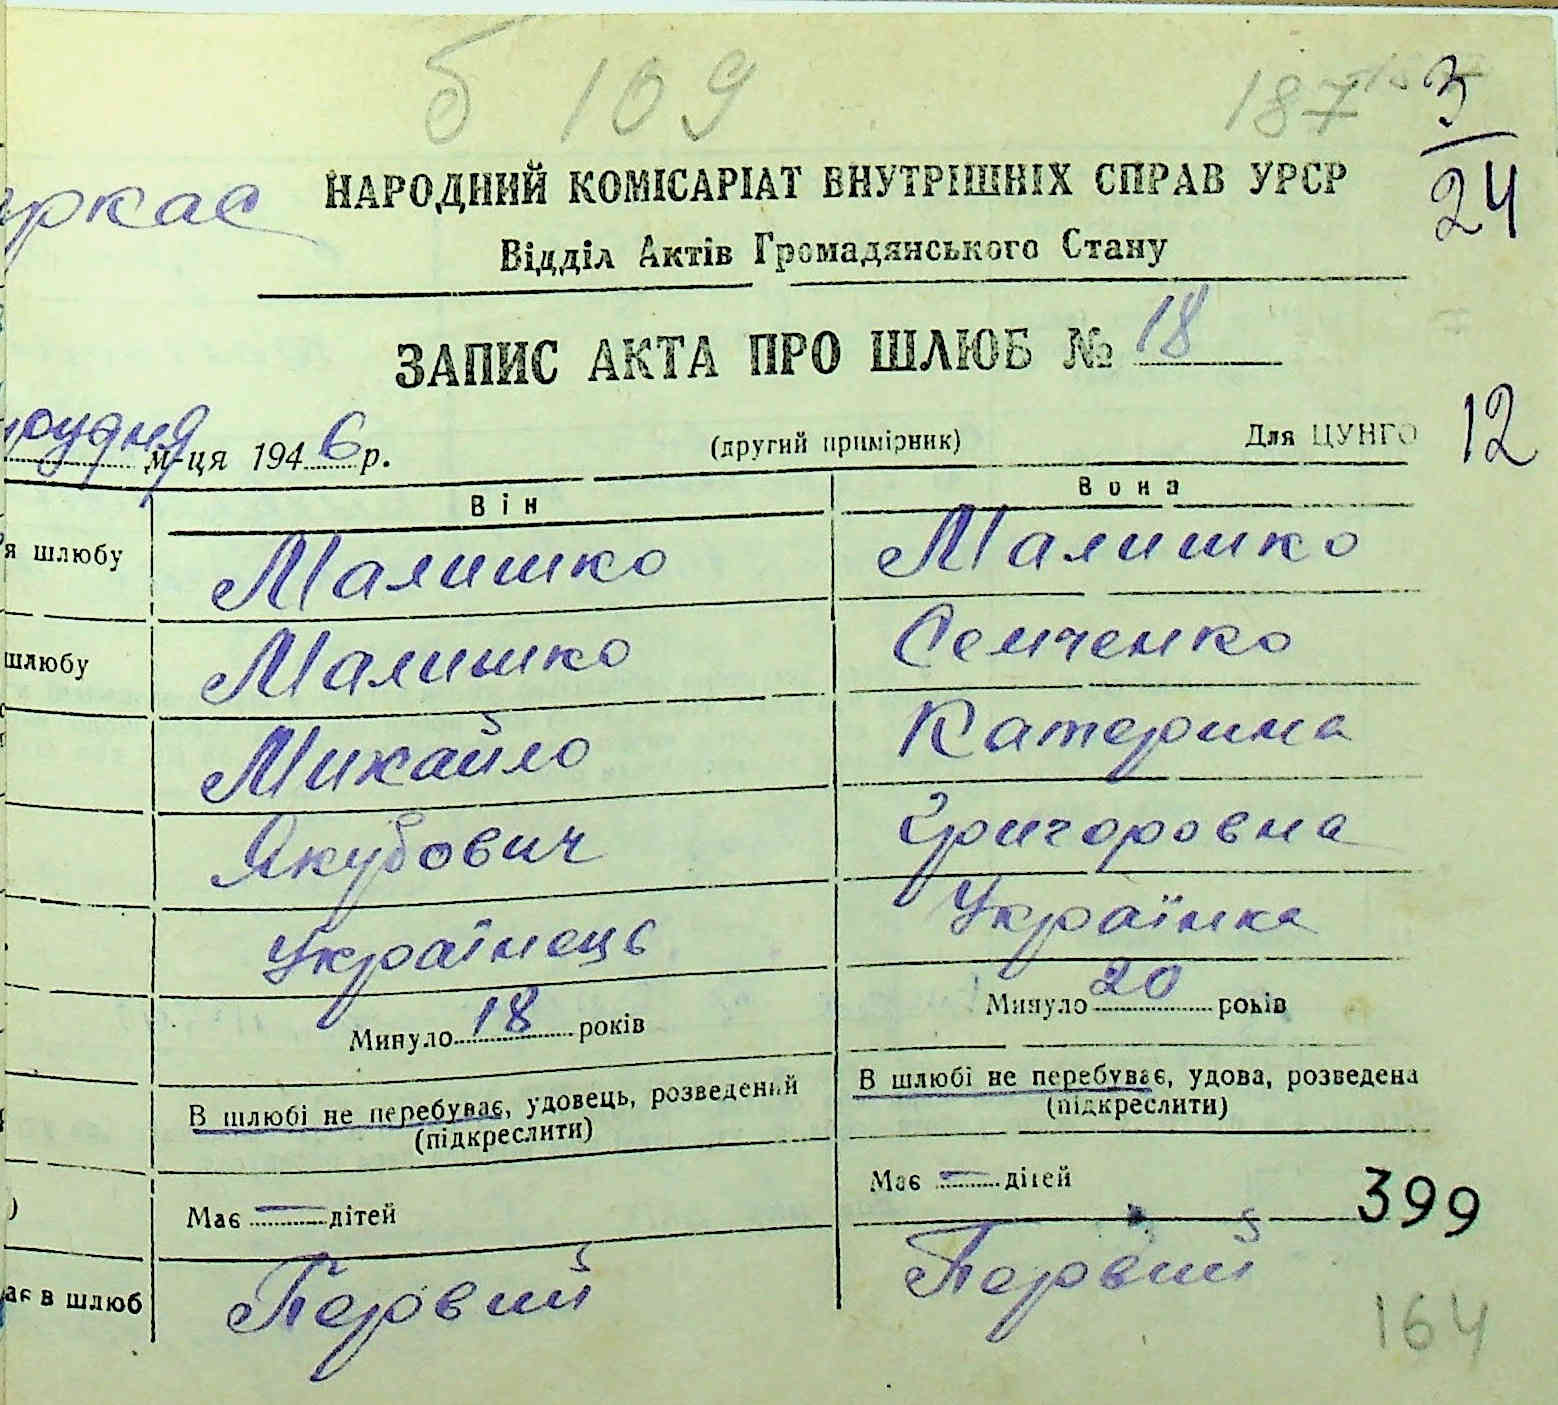 б 109
187
3
24
ркас
НАРОДНИЙ КОМІСАРІАТ ВНУТРІШНІХ СПРАВ УРСР
Відділ Актів Громадянського Стану
ЗАПИС АКТА ПРО ШЛЮБ № 18
грудня м-ця 1946 р. (другий примірник) Для ЦУНГО 12
Він Вона
я шлюбу Малишко Малишко
шлюбу Малишко Семченко
Михайло Катерина
Якубович Григоровна
Українець Українка
Минуло 18 років Минуло 20 років
В шлюбі не перебуває, удовець, розведений В шлюбі не перебуває, удова, розведена
(підкреслити) (підкреслити)
) Має — дітей Має — дітей 399
ає в шлюб Первий Первий
164